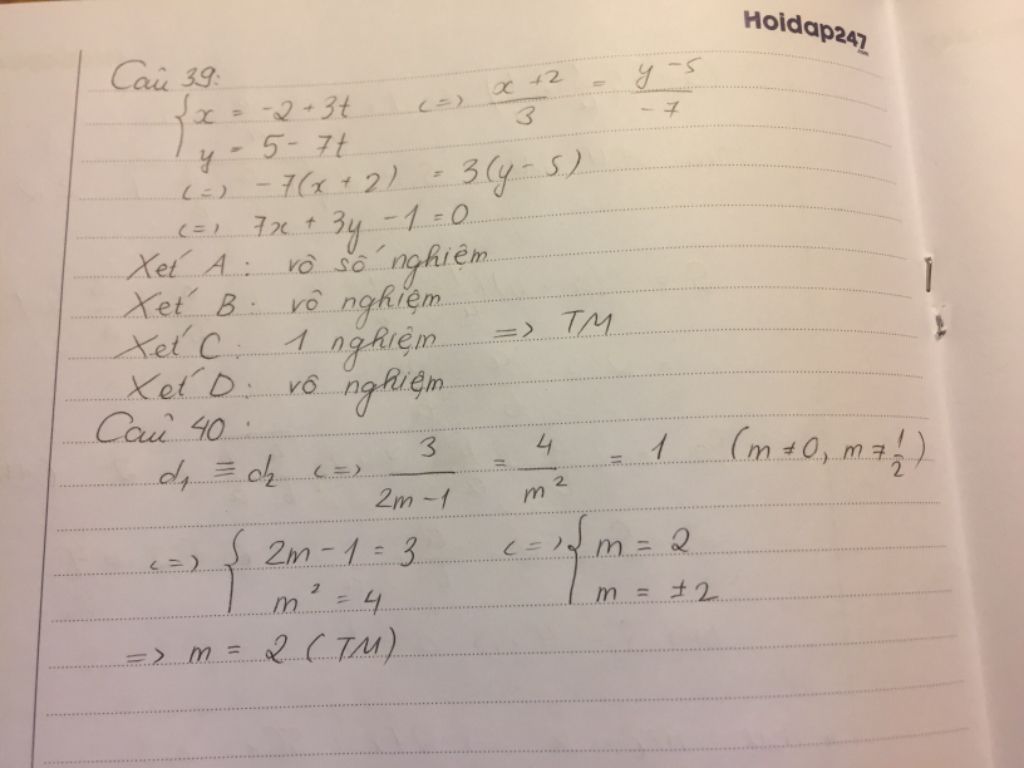 Hoidap247.com
Câu 39:
{ x = -2 + 3t <=> (x+2)/3 = (y-5)/-7
y = 5 - 7t
<=> -7(x+2) = 3(y-5)
<=> 7x + 3y - 1 = 0
Xét A: vô số nghiệm
Xét B: vô nghiệm
Xét C: 1 nghiệm => TM
Xét D: vô nghiệm
Câu 40:
d₁ ≡ d₂ <=> 3/(2m-1) = 4/m² = 1 (m ≠ 0, m ≠ 1/2)
<=> { 2m - 1 = 3 <=> { m = 2
m² = 4 m = ±2
=> m = 2 (TM)